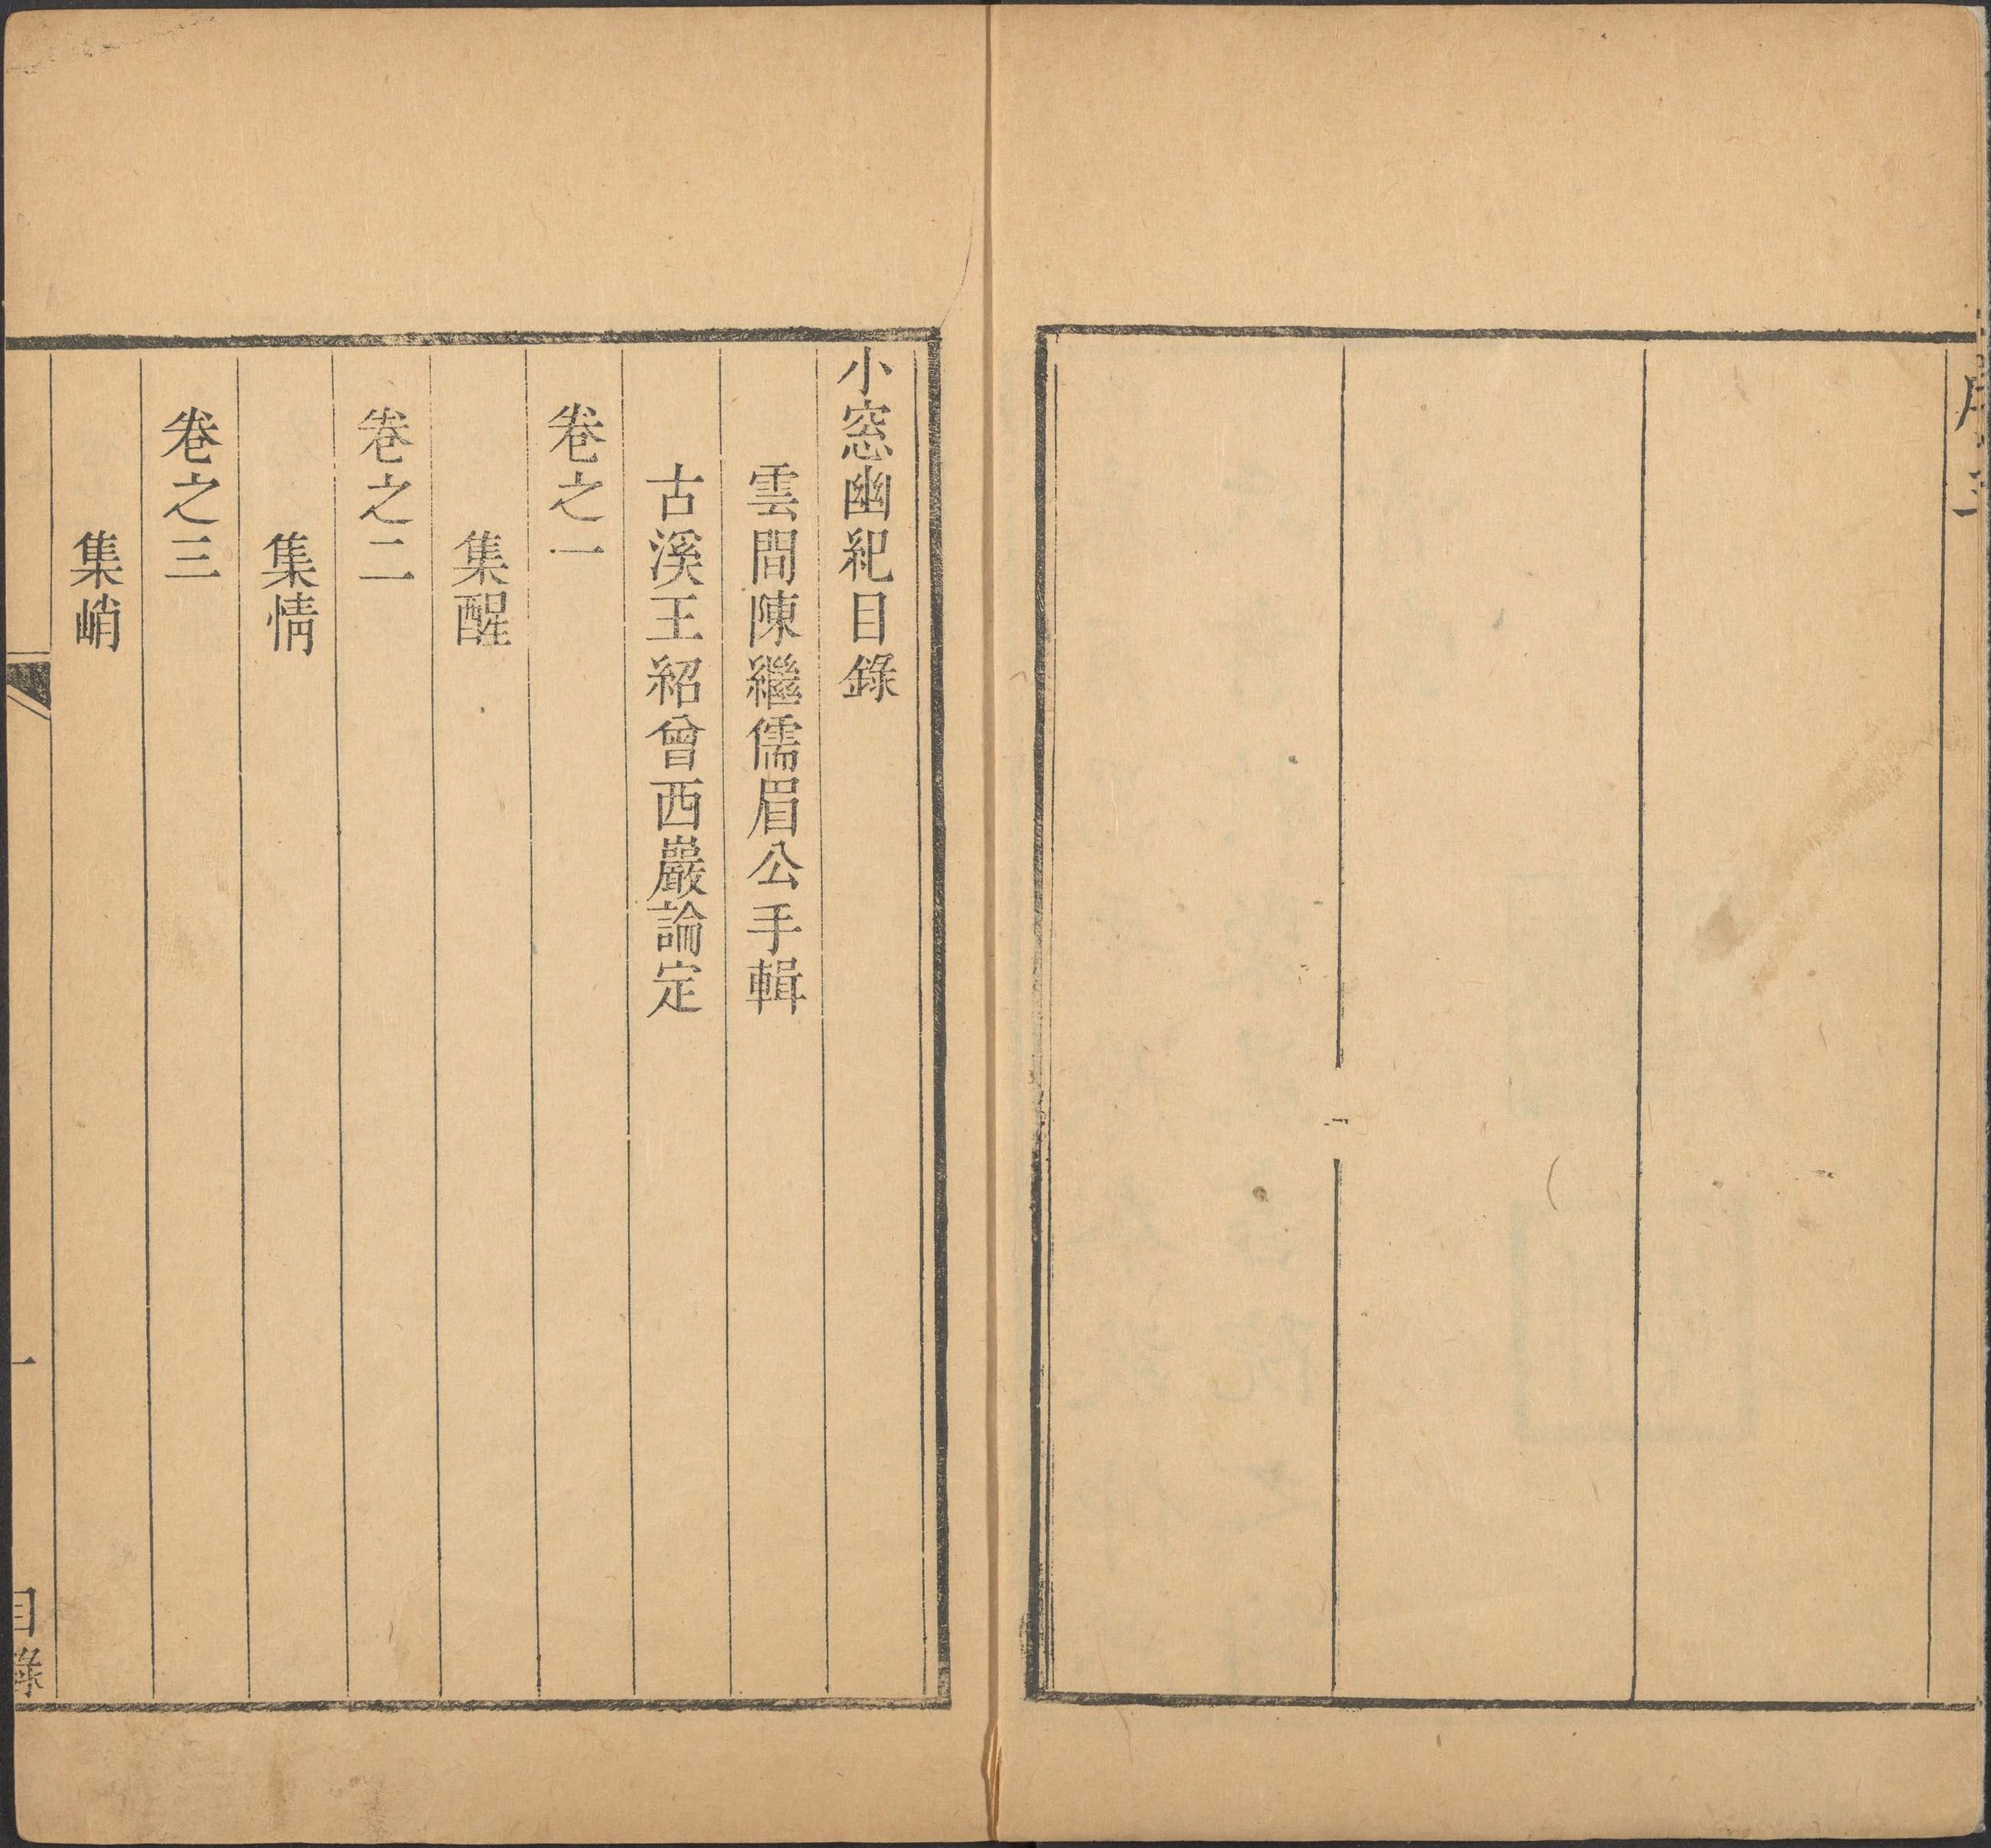 小窓幽紀目錄
雲間陳繼儒眉公手輯
古溪王紹曾西巖論定
卷之一
集醒
卷之二
集情
卷之三
集峭
一
目錄